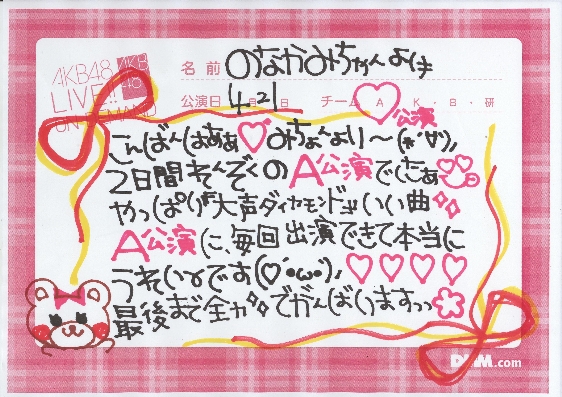 AKB48
LIVE!!
ON DEMAND
AKB
48
名前 のなかみちゃんよぃ
公演日 4月21日 チーム A・K・B・研
公演
こんばんはぁぁ♡みちょよりー(*´∀`)ノ
2日間れんぞくのA公演でしたぁ
やっぱり『大声ダイヤモンド』いい曲
A公演に、毎回出演できて本当に
うれしいです(♡´・ω・`)ノ♡♡♡♡
最後まで全力でがんばりますっっ
DMM.com